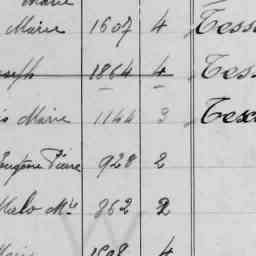 Marie
Marie 1607 4 Tess
Joseph 1864 4 Tess
Marie 1144 3 Tex
Eugène Pierre 928 2
Malo Mie 862 2
4